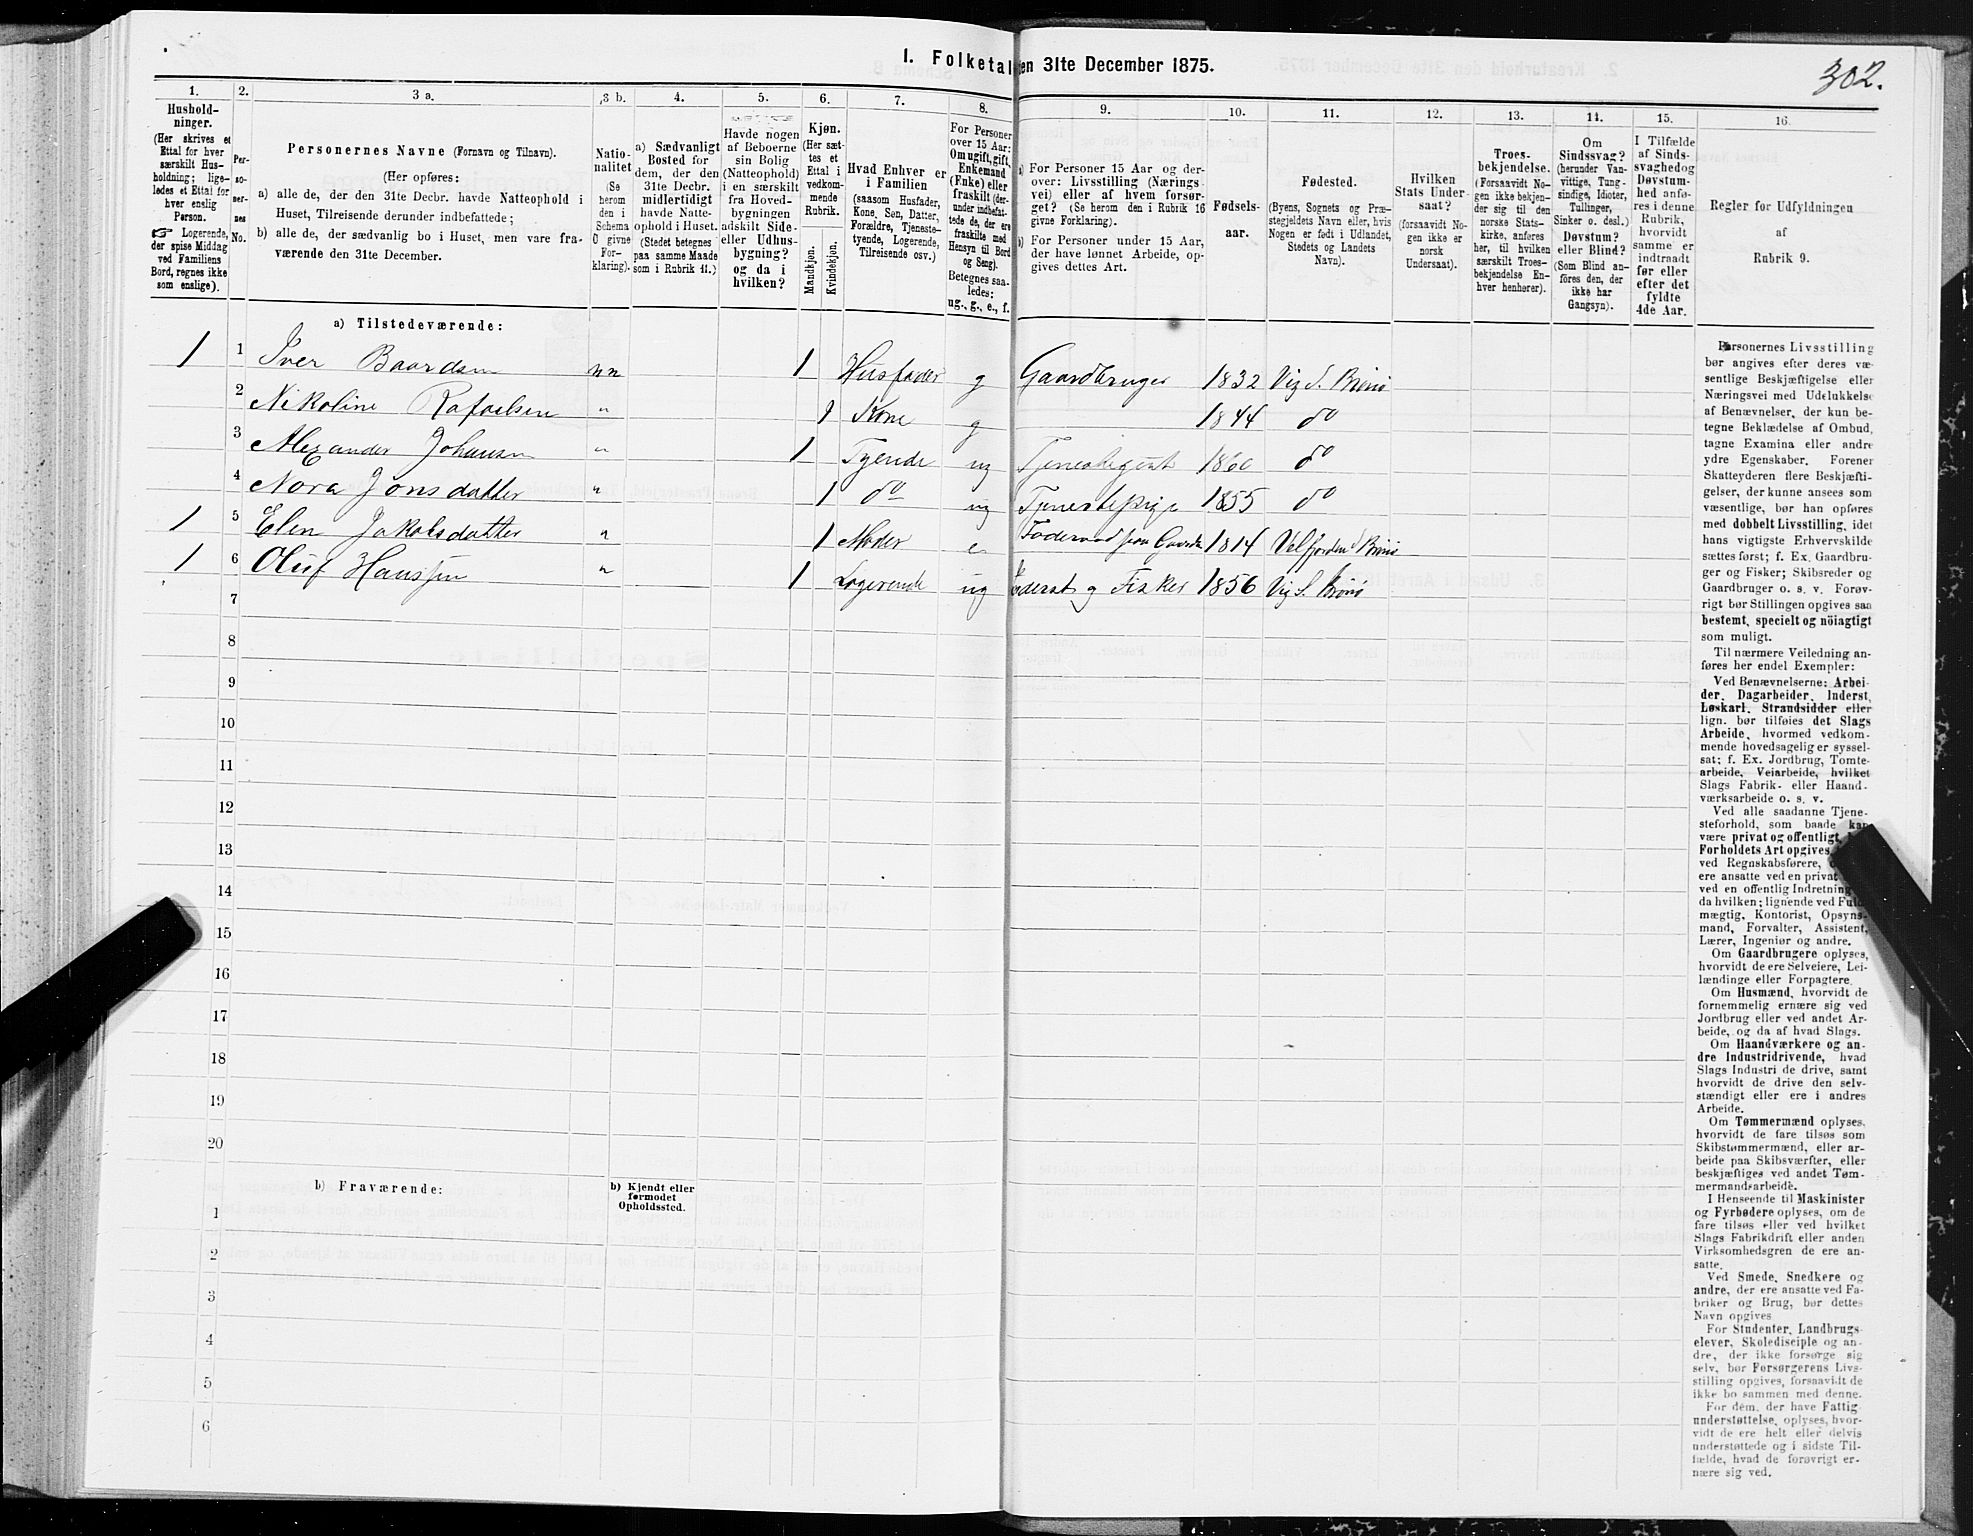 I. Folketal
en 31te December 1875.
302.
1.
2.
3 a.
3 b.
4.
5.
6.
7.
8.
9.
10.
11.
12.
13.
14.
15.
16.
Hushold-
ninger.
(Her skrives et
Ettal for hver
særskilt Hus-
holdning; lige-
ledes et Ettal for
hver enslig
Person.
☞ Logerende,
der spise Middag
ved Familiens
Bord, regnes ikke
som enslige).
Per-
so-
ner-
nes
No.
Personernes Navne (Fornavn og Tilnavn).
(Her opføres:
a) alle de, der den 31te Decbr. havde Natteophold i
Huset, Tilreisende derunder indbefattede;
b) alle de, der sædvanlig bo i Huset, men vare fra-
værende den 31te December.
Natio-
nalitet
(Se
herom
den i
Schema
O givne
For-
klaring).
a) Sædvanligt
Bosted for
dem, der den
31te Decbr.
midlertidigt
havde Natte-
ophold i Huset.
(Stedet betegnes
paa samme Maade
som i Rubrik 11.)
Havde nogen
af Beboerne
sin Bolig
(Natteophold)
i en særskilt
fra Hoved-
bygningen
adskilt Side-
eller Udhus-
bygning?
og da i
hvilken?
Kjøn.
(Her sæt-
tes et
Ettal i
vedkom-
mende
Rubrik.
Mandkjøn.
Kvindekjøn.
Hvad Enhver er
i Familien
(saasom Husfader,
Kone, Søn, Datter,
Forældre, Tjeneste-
tyende, Logerende,
Tilreisende osv.)
For Personer
over 15 Aar:
Om ugift, gift,
Enkemand
(Enke) eller
fraskilt (der-
under indbefat-
tede de, der ere
fraskilte med
Hensyn til Bord
og Seng).
Betegnes saa-
ledes:
ug., g., e., f.
a) For Personer 15 Aar og der-
over: Livsstilling (Nærings-
vei) eller af hvem forsør-
get? (Se herom den i Rubrik 16
givne Forklaring).
b) For Personer under 15 Aar,
der have lønnet Arbeide, op-
gives dettes Art.
Fødsels-
aar.
Fødested.
(Byens, Sognets og Præ-
stegjeldets Navn eller, hvis
Nogen er født i Udlandet,
Stedets og Landets
Navn).
Hvilken
Stats Under-
saat?
(forsaavidt No-
gen ikke er
norsk
Undersaat).
Troes-
bekjendelse.
(Forsaavidt No-
gen ikke bekjen-
der sig til den
norske Stats-
kirke, anføres
her, til hvilken
særskilt Troes-
bekjendelse En-
hver henhører).
Om
Sindssvag?
(herunder Van-
vittige, Tung-
sindige, Idioter,
Tullinger,
Sinker o. desl.)
Døvstum?
eller Blind?
(Som Blind an-
føres den, der
ikke har
Gangsyn).
I Tilfælde
af Sinds-
svaghed og
Døvstum-
hed anfø-
res i denne
Rubrik,
hvorvidt
samme er
indtraadt
før eller
efter det
fyldte
4de Aar.
Regler for Udfyldningen
af
Rubrik 9.
a) Tilstedeværende:
1 1 Iver Baardsen nn 1 Husfader g Gaardbruger 1832 Vig S. Brønø
2 Nikoline Rafaelsen " 1 Kone g 1844 do
3 Alexander Johansen " 1 Tyende ug Tjenestegut 1860 do
4 Nora Jonsdatter " 1 do ug Tjenestepige 1855 do
1 5 Elen Jakobsdatter " 1 Moder e Føderaad fra Gaarden 1814 Velfjorden Brønø
1 6 Oluf Hanssen " 1 Logerende ug Inderst og Fisker 1856 Vig S. Brønø
7
8
9
10
11
12
13
14
15
16
17
18
19
20
b) Fraværende:
b) Kjendt eller
formodet
Opholdssted.
1
2
3
4
5
6
Personernes Livsstilling
bør angives efter deres væ-
sentlige Beskjæftigelse eller
Næringsvei med Udelukkelse
af Benævnelser, der kun be-
tegne Beklædelse af Ombud,
tagne Examina eller andre
ydre Egenskaber. Forener
Skatteyderen flere Beskjæfti-
gelser, der kunne ansees som
væsentlige, bør han opføres
med dobbelt Livsstilling, idet
hans vigtigste Erhvervskilde
sættes først; f. Ex. Gaardbru-
ger og Fisker; Skibsreder og
Gaardbruger o. s. v. Forøv-
rigt bør Stillingen opgives saa
bestemt, specielt og nöiagtigt
som muligt.
Til nærmere Veiledning an-
føres her endel Exempler:
Ved Benævnelserne: Arbei-
der, Dagarbeider, Inderst,
Løskarl, Strandsidder eller
lign. bør tilføies det Slags
Arbeide, hvormed vedkom-
mende hovedsagelig er syssel-
sat; f. Ex. Jordbrug, Tomte-
arbeide, Veiarbeide, hvilket
Slags Fabrik- eller Haand-
værksarbeide o. s. v.
Ved alle saadanne Tjene-
steforhold, som baade kan
være privat og offentligt,
Forholdets Art opgives,
ved Regnskabsførere,
ere ansatte ved en privat
ved en offentlig Indretning
da hvilken; lignende ved Fuld-
mægtig, Kontorist, Opsyns-
mand, Forvalter, Assistent,
Lærer, Ingeniør og andre.
Om Gaardbrugere oplyses,
hvorvidt de ere Selveiere, Lei-
lændinge eller Forpagtere.
Om Husmænd, hvorvidt de
fornemmelig ernære sig ved
Jordbrug eller ved andet Ar-
beide, og da af hvad Slags.
Om Haandværkere og an-
dre Industridrivende, hvad
Slags Industri de drive, samt
hvorvidt de drive den selv-
stændigt eller ere i andres
Arbeide.
Om Tømmermænd oplyses,
hvorvidt de fare tilsøs som
Skibstømmermænd, eller ar-
beide paa Skibsværfter, eller
beskjæftiges ved andet Tøm-
mermandsarbeide.
I Henseende til Maskinister
og Fyrbødere oplyses, om de
fare tilsøs eller ved hvilket
Slags Fabrikdrift eller anden
Virksomhedsgren de ere an-
satte.
Ved Smede, Snedkere og
andre, der ere ansatte ved Fa-
briker og Brug, bør dettes
Navn opgives
For Studenter, Landbrugs-
elever, Skoledisciple og an-
dre, der ikke forsørge sig
selv, bør Forsørgerens Livs-
stilling opgives, forsaavidt de
ikke bo sammen med denne.
For dem, der have Fattig-
understøttelse, oplyses, hvor-
vidt de ere helt eller delvis
understøttede og i sidste Til-
fælde, hvad de forøvrigt er-
nære sig ved.